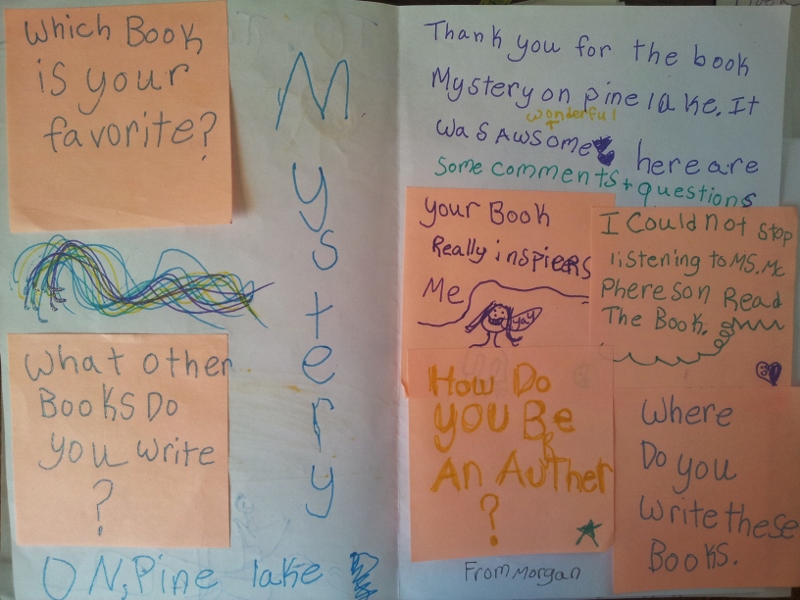 Which Book
is your
favorite?
What other
Books Do
you write
?
Mystery
ON, Pine lake
Thank you for the book
Mystery on pine lake. It
wonderful
was awsome here are
some comments + questions
your Book
Really inspieers
Me
yay
I Could not stop
listening to MS. Mc
Phereson Read
The Book.
How Do
you Be
An Auther
?
Where
Do you
write these
Books.
From Morgan